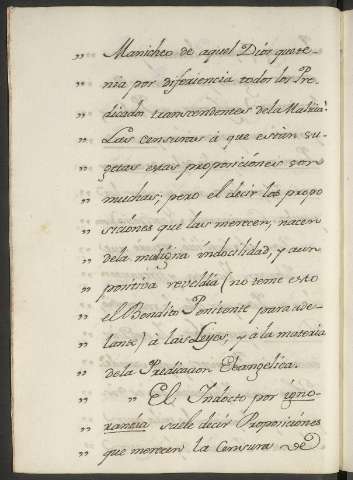 „ Manicheo de aquel Dios que te-
„ nia por diferiencia todos los Pre-
„ dicados transcendentes de la Malicia.
„ Las censuras à que están su-
„ getas estas proposiciónes son
„ muchas; pero el decir los propo
„ siciónes que las merecen, nacen
„ dela maligna indocilidad, y aun
„ positiva reveldia (no teme esto
„ el Bendito Penitente para ade-
„ lante) à las Leyes, y à la materia
„ dela Predicacion Ebangelica.
„ „ El Indocto por igno-
„ rancia suele decir Proposiciónes
„ que merecen la Censura de